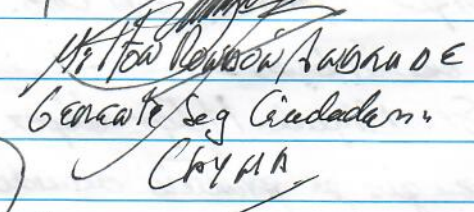 Milton Rendón Andrade
Gerente Seg Ciudadana
CAYMA